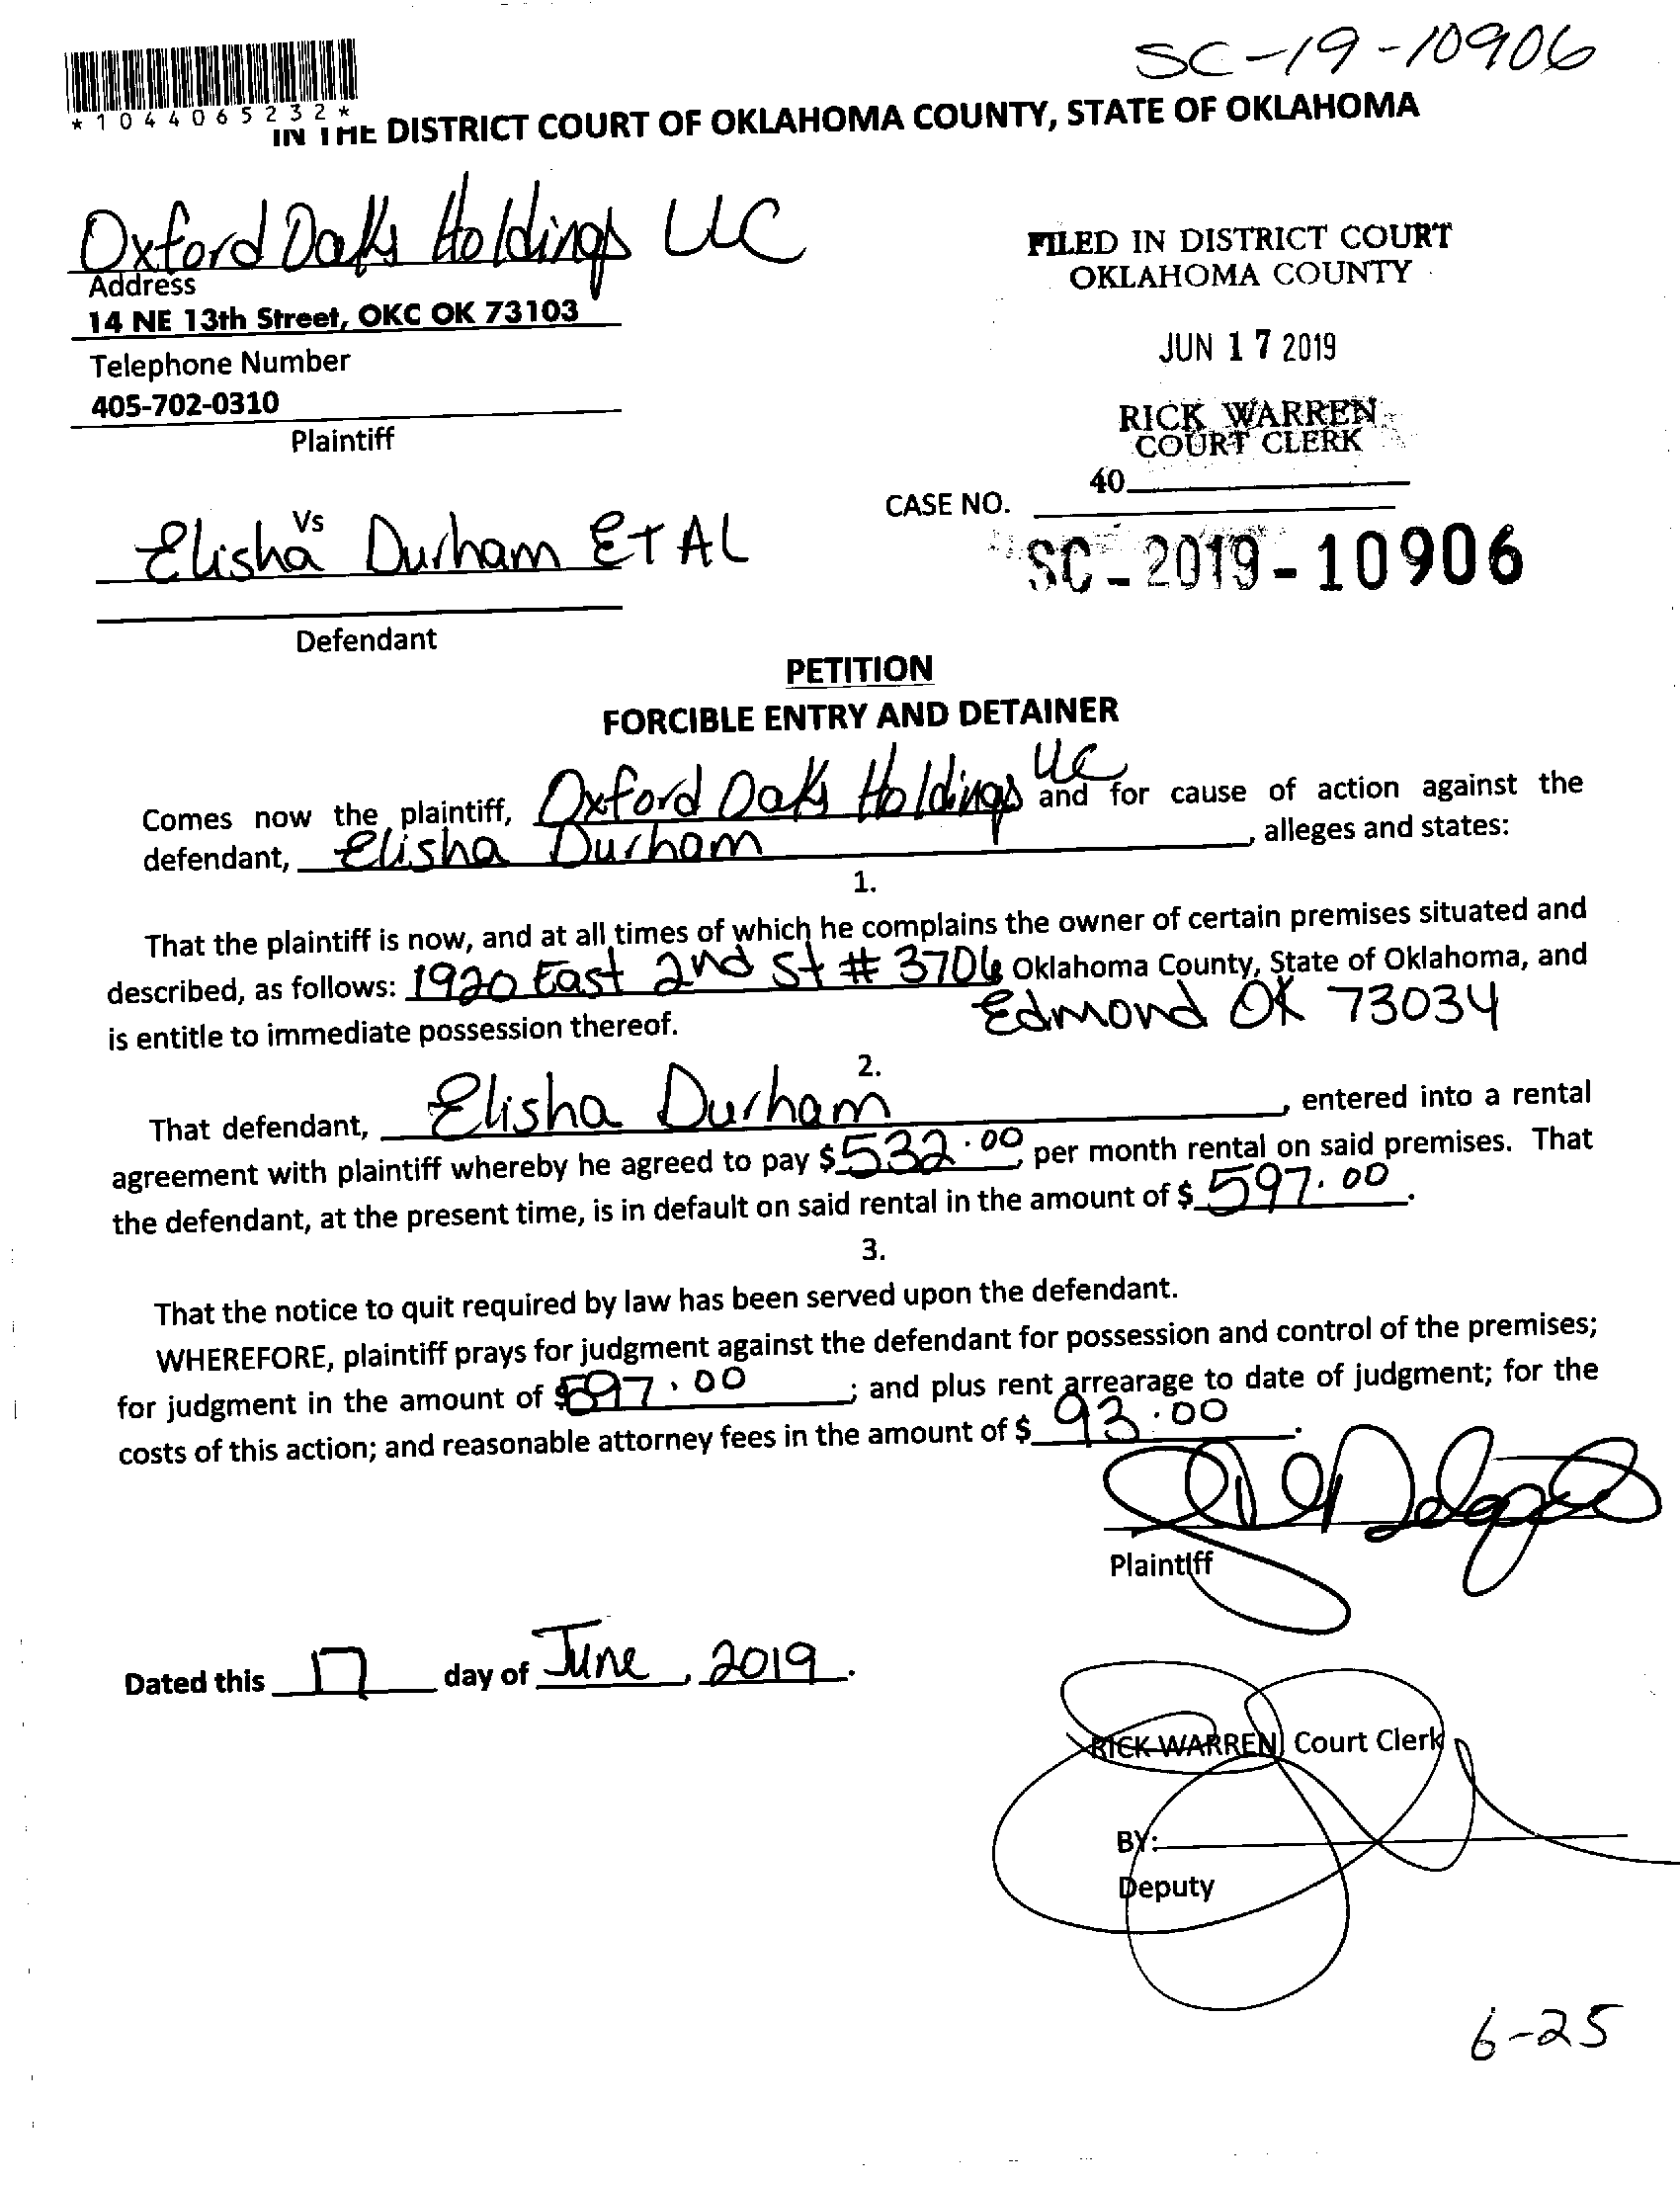 SC-19-10906
*1044065232*
IN THE DISTRICT COURT OF OKLAHOMA COUNTY, STATE OF OKLAHOMA
Oxford Oaks Holdings LLC
Address
14 NE 13th Street, OKC OK 73103
Telephone Number
405-702-0310
Plaintiff
FILED IN DISTRICT COURT
OKLAHOMA COUNTY
JUN 17 2019
RICK WARREN
COURT CLERK
40
Vs
Elisha Durham ET AL
Defendant
CASE NO.
SC-2019-10906
PETITION
FORCIBLE ENTRY AND DETAINER
Comes now the plaintiff, Oxford Oaks Holdings LLC and for cause of action against the
defendant, Elisha Durham, alleges and states:
1.
That the plaintiff is now, and at all times of which he complains the owner of certain premises situated and
described, as follows: 1920 East 2nd St # 3706 Oklahoma County, State of Oklahoma, and
Edmond OK 73034
is entitle to immediate possession thereof.
2.
That defendant, Elisha Durham, entered into a rental
agreement with plaintiff whereby he agreed to pay $532.00, per month rental on said premises. That
the defendant, at the present time, is in default on said rental in the amount of $597.00.
3.
That the notice to quit required by law has been served upon the defendant.
WHEREFORE, plaintiff prays for judgment against the defendant for possession and control of the premises;
for judgment in the amount of $597.00; and plus rent arrearage to date of judgment; for the
costs of this action; and reasonable attorney fees in the amount of $93.00.
Plaintiff
Dated this 17 day of June, 2019.
RICK WARREN, Court Clerk
BY:
Deputy
6-25